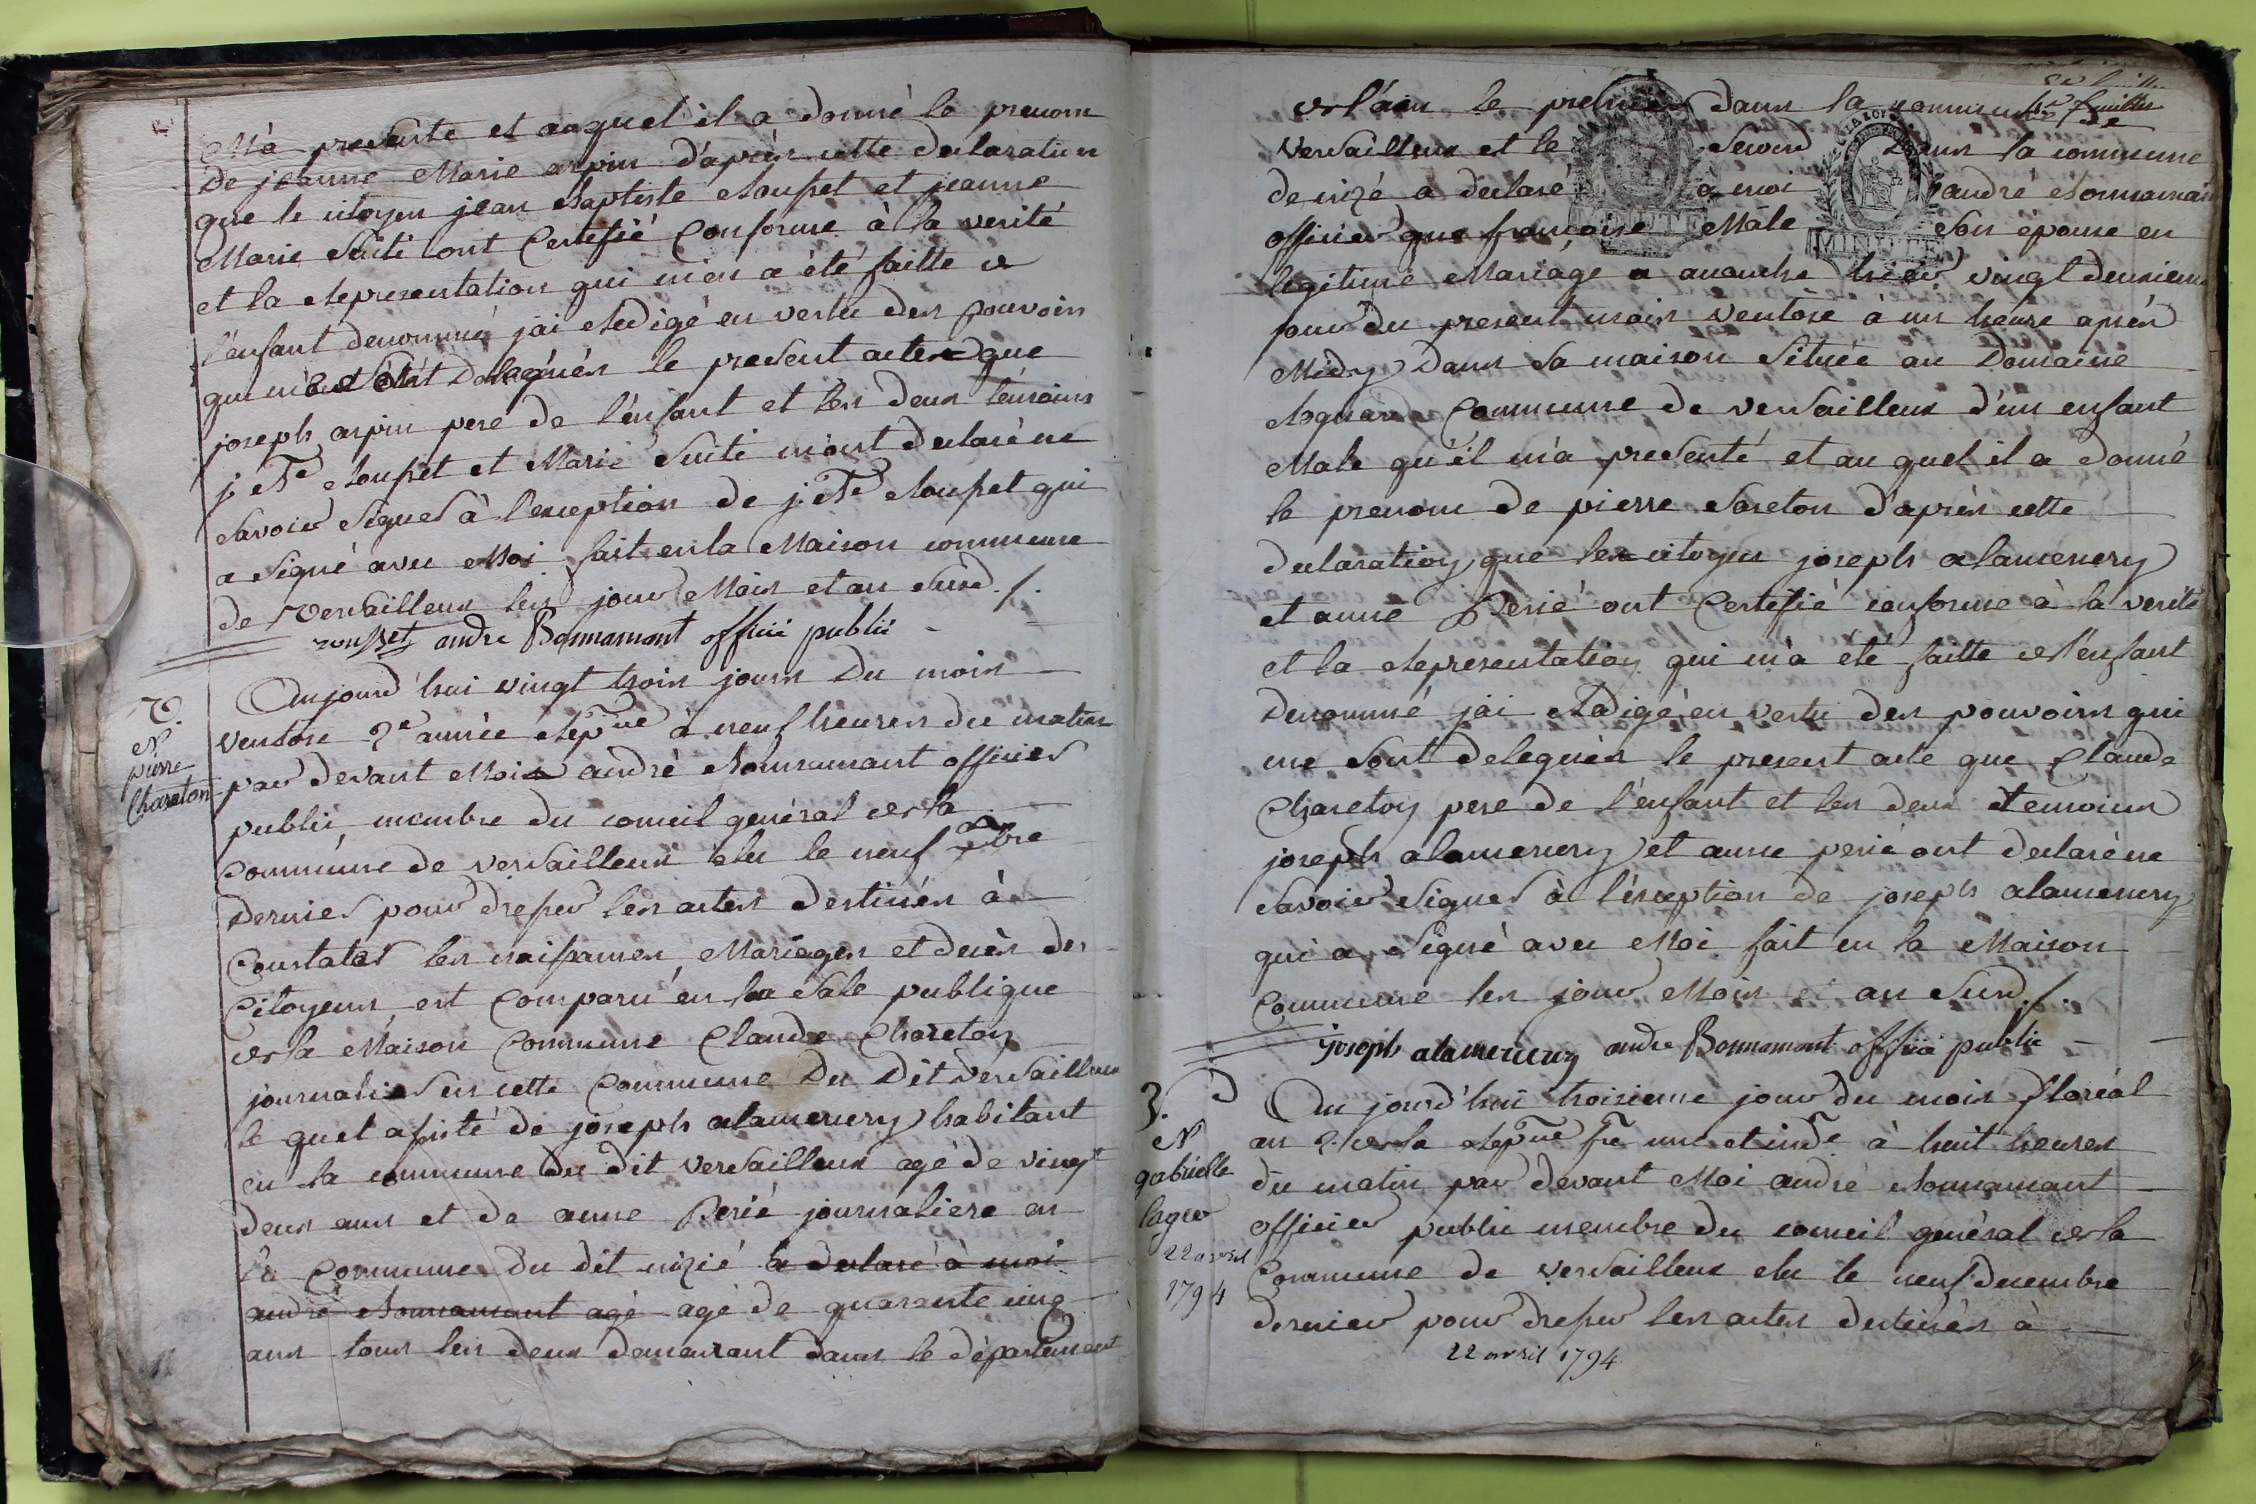 M'a presenté et auquel il a donné le prenom
de jeanne Marie arpin d'après cette declaration
que le citoyen jean Baptiste Roupet et jeanne
Marie Suiti ont Certifié Conforme à la verité
et la Representation qui m'en a été faitte de
l'enfant denommé jai Redigé en vertu des pouvoirs
qui me sont Delegués le present acte que
joseph arpin pere de l'enfant et les deux témoins
j. Bte Roupet et Marie Suiti m'ont declaré ne
Savoir Signer à l'exception de j. Bte Roupet qui
a Signé avec Moi fait en la Maison commune
de Versailleux les jour Mois et an Susd. /.
rousset andre Bonnamont officie publii
Aujourd'hui vingt trois jours Du mois
Ventose 2e année Repque à neuf heures du matin
par devant Moi andré Bonnamant officier
public, membre du conseil general de la
Commune de Versailleux élu le neuf Xbre
Dernier pour dresser les actes destinés à
Constater les naissances, Mariages et decès des
Citoyens, est Comparu en la Sale publique
de la Maison Commune Claude Chareton
journalier en cette Commune Du Dit Versailleux
le quel assisté de joseph alamercery habitant
en la commune du dit Versailleux agé de vingt
deux ans et de anne Perié journaliere en
la Commune Du dit nizié a declaré à moi
andré Bonnamant agé agé de quarante cinq
ans tous les deux demeurant dans le département
2.
N
pierre
Chareton
de l'ain le premier dans la commune de
feuillet
Versailleux et le Second Dans la commune
de nizé a declaré à moi andré Bonnamant
officier que françoise Mâle Son épouse en
legitime Mariage a acouché hier vingt deuxieme
jour du present mois Ventose à un heure après
Midy Dans Sa maison Située au Domaine
Commune de Versailleux d'un enfant
Male qu'il m'a presenté et au quel il a donné
le prenom de pierre Sareton d'après cette
declaration que les citoyen joseph alamercery
et anne Perié ont Certifié conforme à la verité
et la Representation qui m'a été faitte de l'enfant
Denommé jai Redigé en vertu des pouvoirs qui
me Sont delegués le present acte que Claude
Chareton pere de l'enfant et les deux temoins
joseph alamercery et anne perié ont declaré ne
Savoir Signer à l'exception de joseph alamercery
qui a Signé avec Moi fait en la Maison
Commune les jour Mois et an Susd. /.
joseph alamercery andre Bonnamont officie public
3.
N
gabrielle
lager
22 avril
1794
Au jourd'hui troisieme jour du mois floréal
an 2 de la Repque fse une et indle à huit heures
du matin par devant Moi andré Bonnamant
officier public membre du conseil general de la
Commune de Versailleux élu le neuf decembre
dernier pour dresser les actes destinés à
22 avril 1794
LA LOI
MINUTE
MINUTE